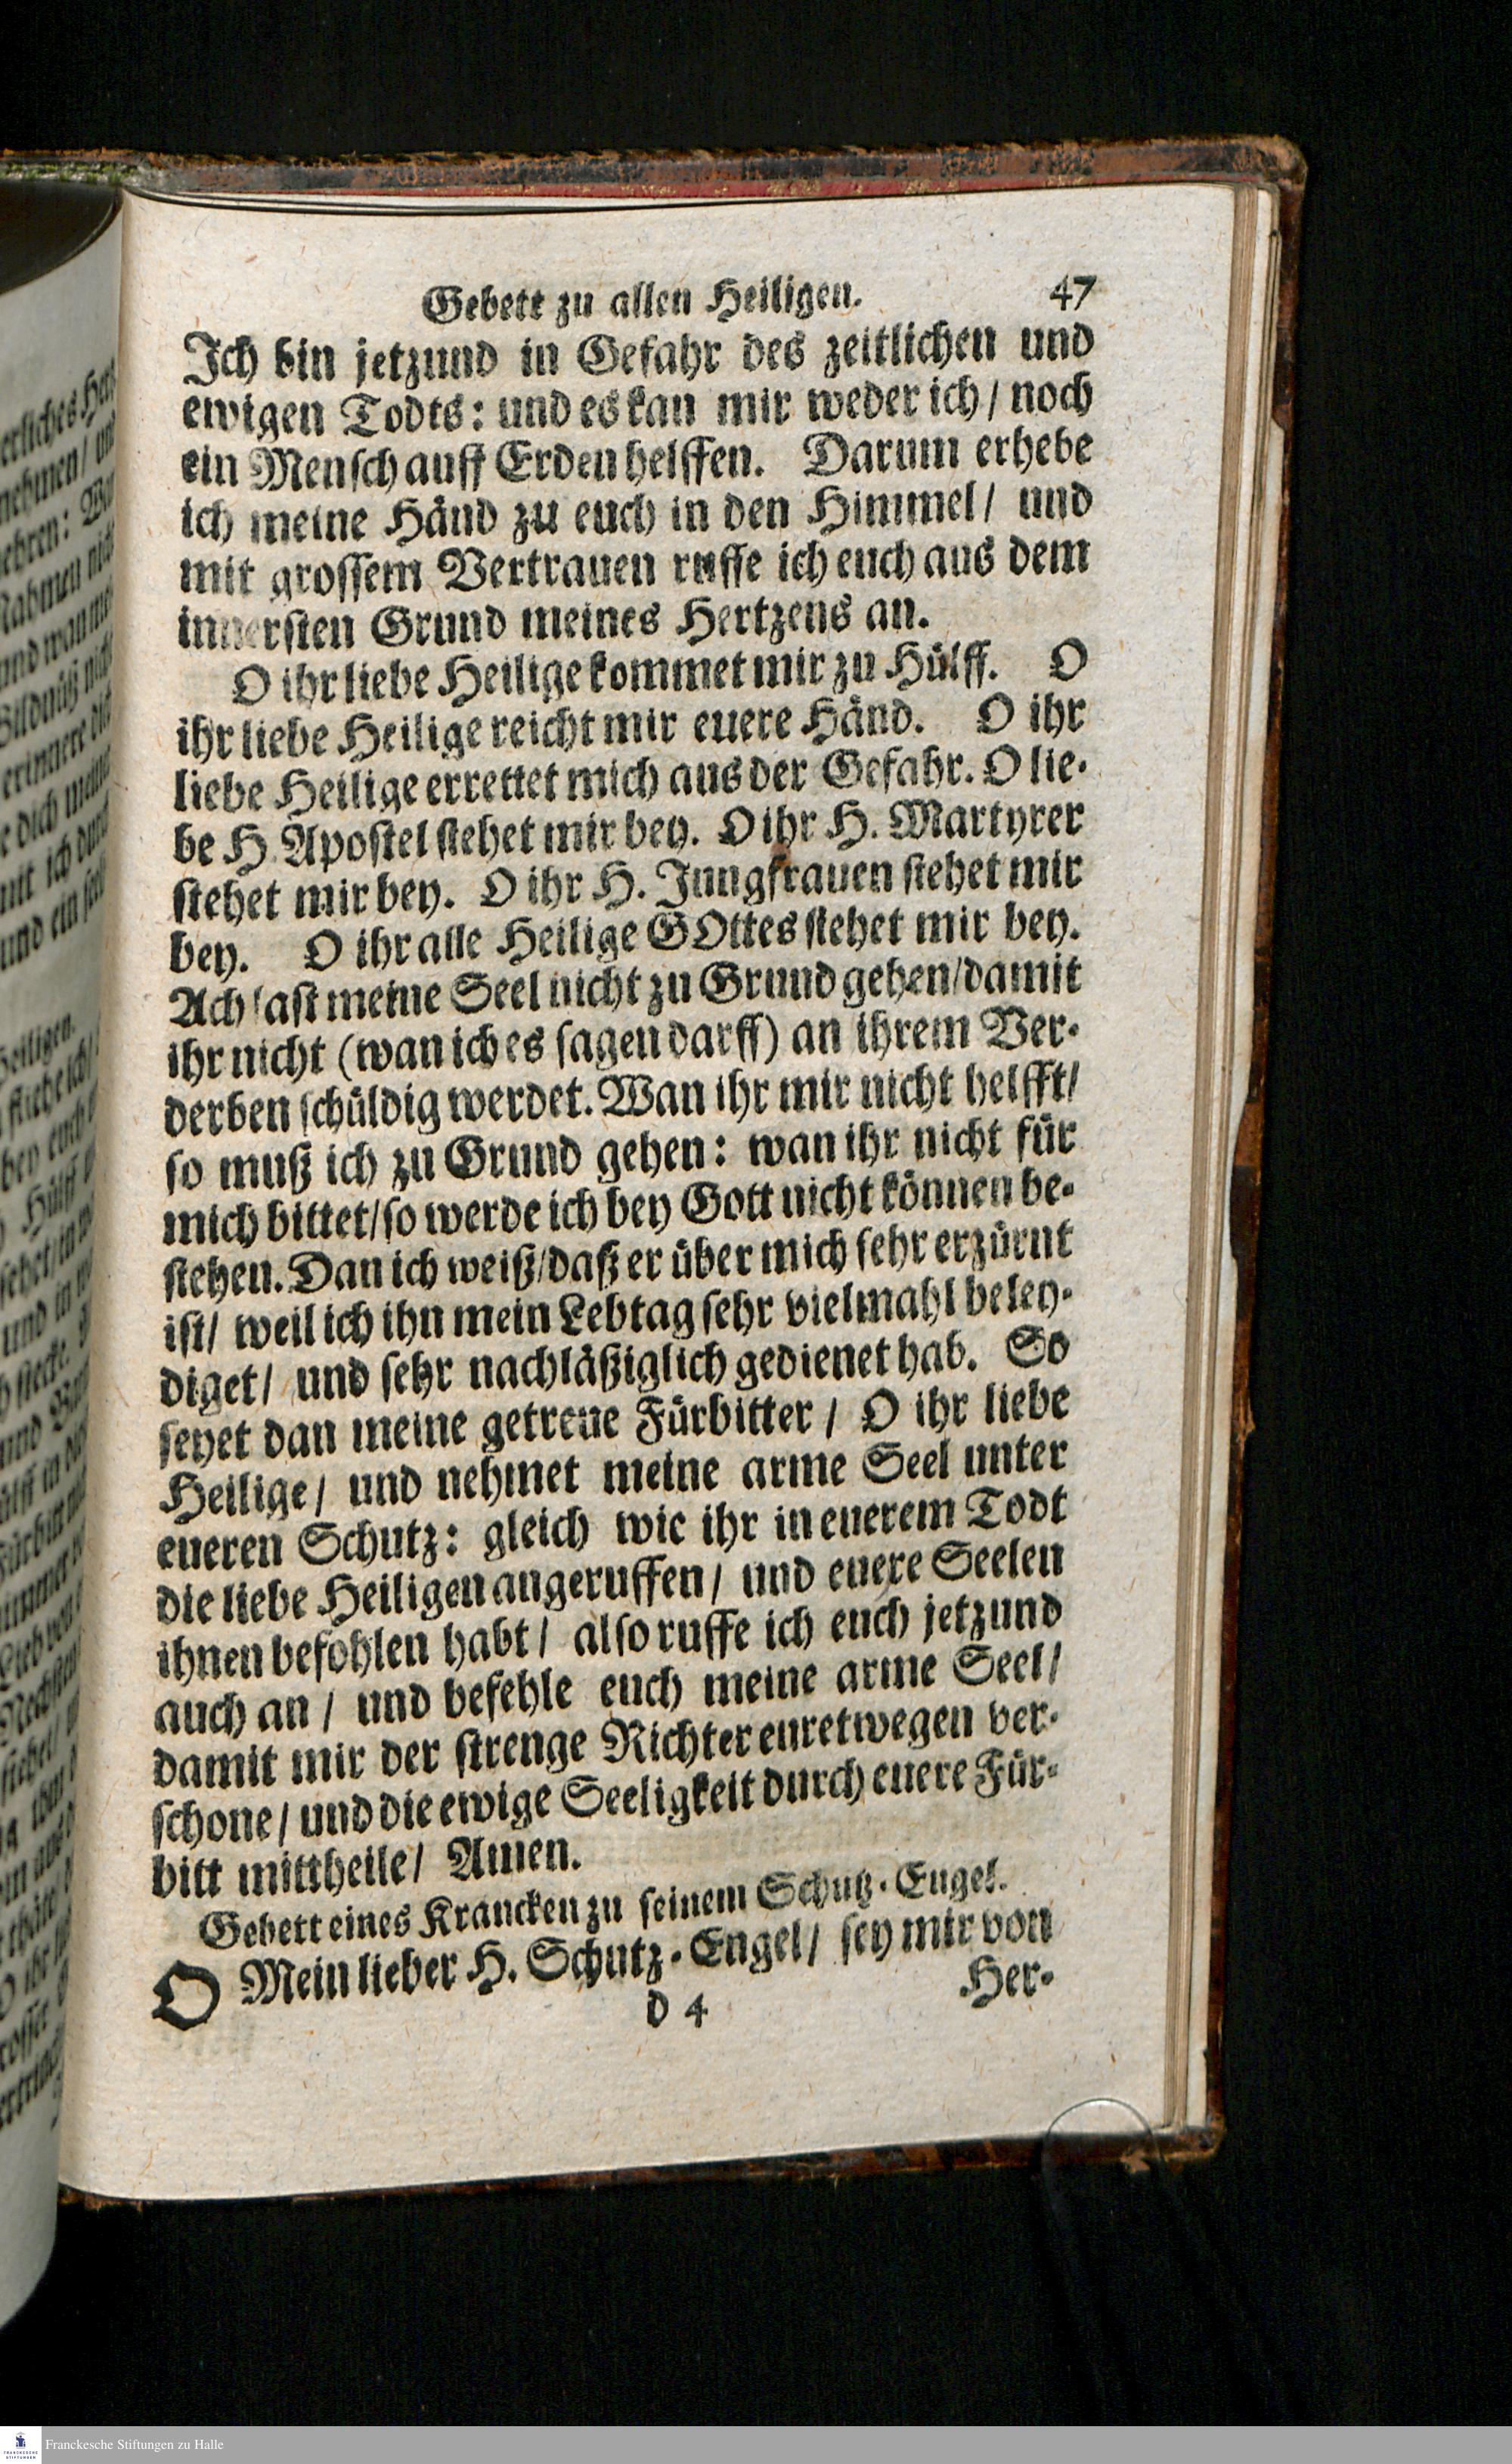 Gebett zu allen Heiligen. 47
Ich bin jetzund in Gefahr des zeitlichen und
ewigen Todts: und es kan mir weder ich / noch
ein Mensch auff Erden helffen. Darum erhebe
ich meine Händ zu euch in den Himmel / und
mit grossem Vertrauen ruffe ich euch aus dem
innersten Grund meines Hertzens an.
O ihr liebe Heilige kommet mir zu Hülff. O
ihr liebe Heilige reicht mir euere Händ. O ihr
liebe Heilige errettet mich aus der Gefahr. O lie-
be H. Apostel stehet mir bey. O ihr H. Martyrer
stehet mir bey. O ihr H. Jungfrauen stehet mir
bey. O ihr alle Heilige GOttes stehet mir bey.
Ach last meine Seel nicht zu Grund gehen / damit
ihr nicht (wan ich es sagen darff) an ihrem Ver-
derben schüldig werdet. Wan ihr mir nicht helfft /
so muß ich zu Grund gehen: wan ihr nicht für
mich bittet / so werde ich bey Gott nicht können be-
stehen. Dan ich weiß / daß er über mich sehr erzürnt
ist / weil ich ihn mein Lebtag sehr vielmahl beley-
diget / und sehr nachläßiglich gedienet hab. So
seyet dan meine getreue Fürbitter / O ihr liebe
Heilige / und nehmet meine arme Seel unter
eueren Schutz: gleich wie ihr in euerem Todt
die liebe Heiligen angeruffen / und euere Seelen
ihnen befohlen habt / also ruffe ich euch jetzund
auch an / und befehle euch meine arme Seel /
damit mir der strenge Richter euretwegen ver-
schone / und die ewige Seeligkeit durch euere Für-
bitt mittheile / Amen.
Gebett eines Krancken zu seinem Schutz-Engel.
O Mein lieber H. Schutz-Engel / sey mir von
D 4 Her-
Franckesche Stiftungen zu Halle